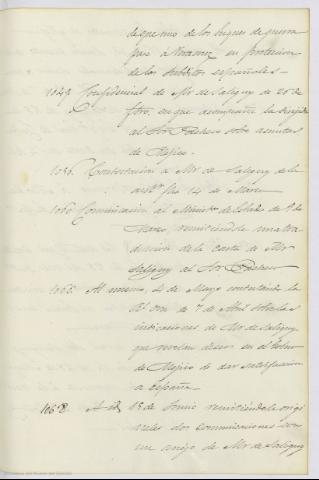 de que uno de los buques de guerra
pase á Veracruz en proteccion
de los súbditos españoles.—
1049 Confidencial de Mr de Saligny de 20 de
fbro, en que acompaña la dirigida
al Sr Pacheco sobre asuntos
de Méjico.
1056. Contestacion á Mr de Saligny de la
fha 14 de Marzo
1060 Comunicacion al Ministro de Estado de 9 de
Marzo, remitiéndole una tra
duccion de la carta de Mr
Saligny al Sr Pacheco
1066 Al mismo, 4 de Mayo contestando la
Rl orn de 7 de Abril sobre las
indicaciones de Mr de Saligny
que revelan deseo en el Gobno
de Méjico de dar satisfaccion
á España.
1068 Al id 13 de Junio remitiéndole origi
nales dos comunicaciones con
un anejo de Mr de Saligny